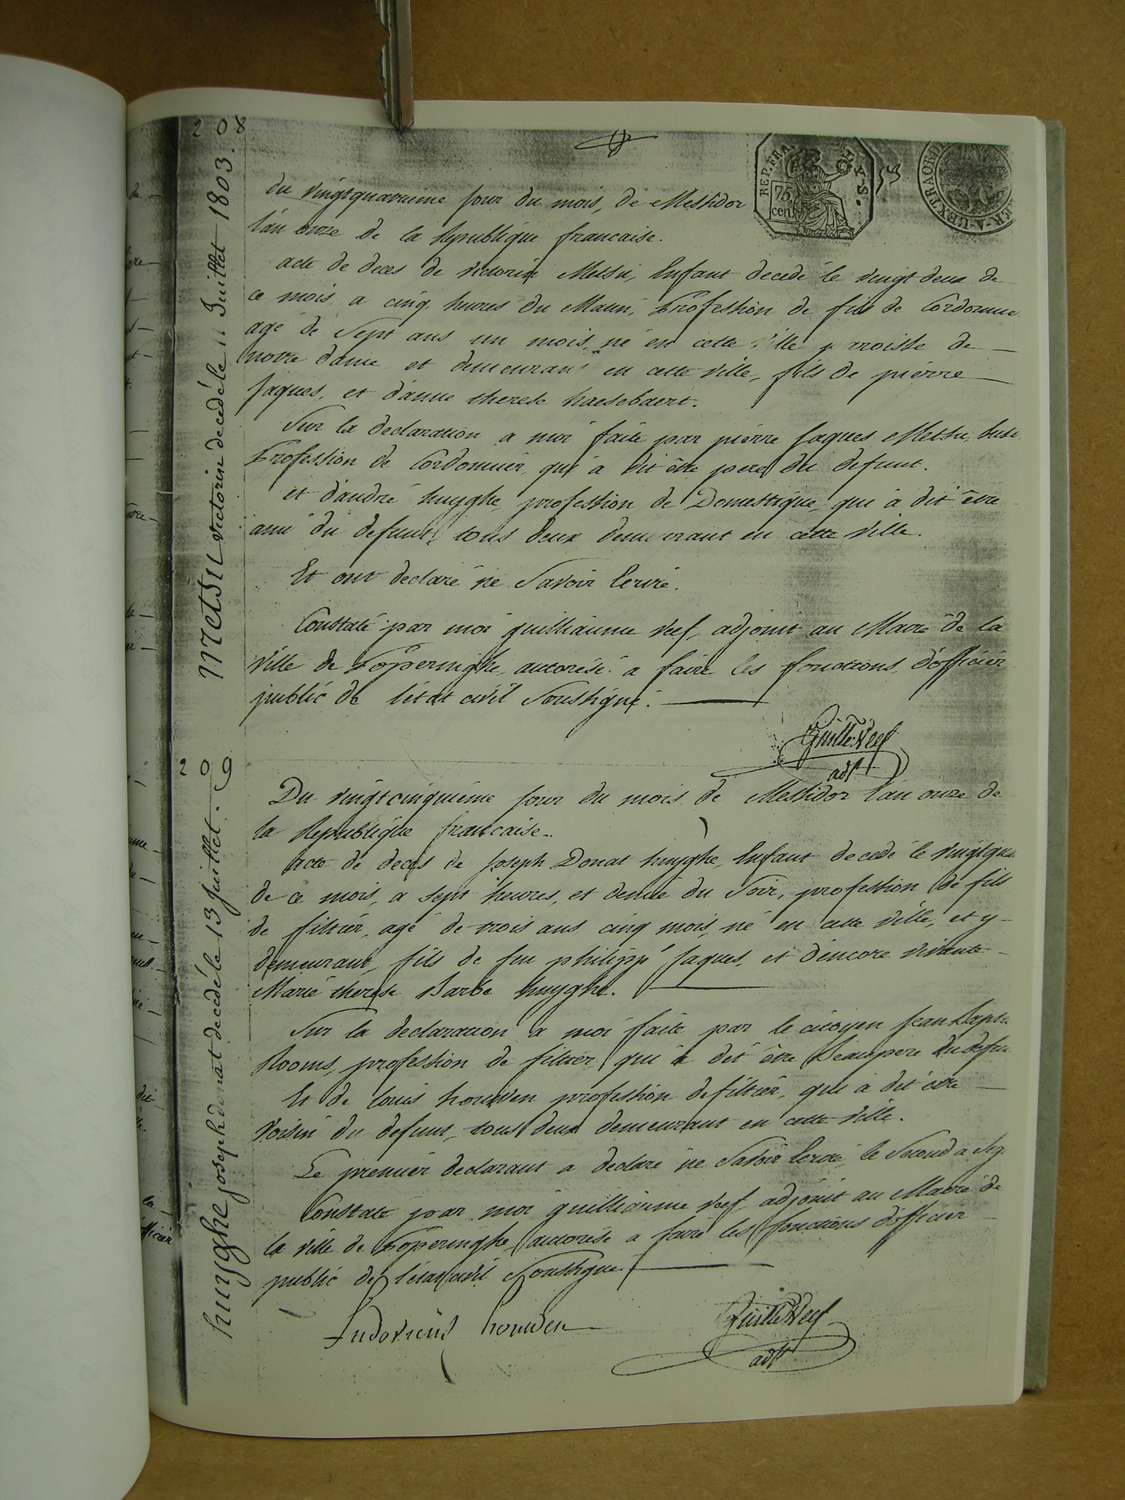 208
METSU victorin decédé le 11 Juillet 1803.
REP. FRA.
75
cent
A.S.
EXTRAORD
du vingtquatrieme jour du mois, de Messidor
l'an onze de la Republique francaise.
acte de deces de victorin Messu, Enfant decedé le vingt deux de
ce mois, a cinq heures du Matin, Profession de fils de Cordonnier
agé de Sept ans un mois, né en cette ville parroisse de
notre dame et demeurant en cette ville, fils de pierre
Jaques, et d'anne therese haesebaert.
Sur la declaration a moi faite par pierre Jaques Messu
Profession de Cordonnier, qui a dit être pere du defunt.
et d'andré huyghe, profession de Domestique, qui à dit être
ami du defunt, tous deux demeurant en cette ville.
Et ont declaré ne Savoir Ecrire.
Constaté par moi guilliaume Veef, adjoint au Maire de la
ville de Poperinghe, autorisé a faire les fonctions d'officier
public de l'état civil Soussigné.
Guille Veef
adjt
209
huyghe joseph donat decédé le 13 juillet.
Du vingtcinquieme jour du mois de Messidor l'an onze de
la Republique francaise.
acte de deces de Joseph Donat huyghe, Enfant decedé le vingtqua
de ce mois, a sept heures, et demie du Soir, profession de fils
de filtier, agé de trois ans cinq mois, né en cette ville, et y
demeurant, fils de feu philippe Jaques, et d'encore vivante
Marie therese Barbe huyghe.
Sur la declaration a moi faite par le citoyen Jean Bapte
Rooms, profession de filtier, qui à dit être Beaupere du defun
Et de louis houwen profession de filtier, qui à dit être
voisin du defunt, tous deux demeurant en cette ville.
Le premier declarant a declaré ne Savoir Ecrire, le Second a Sig
Constaté par moi guilliaume Veef, adjoint au Maire de
la ville de Poperinghe, autorisé a faire les fonctions d'officier
public de l'état civil Soussigné.
Ludovicus houwen
Guille Veef
adjt